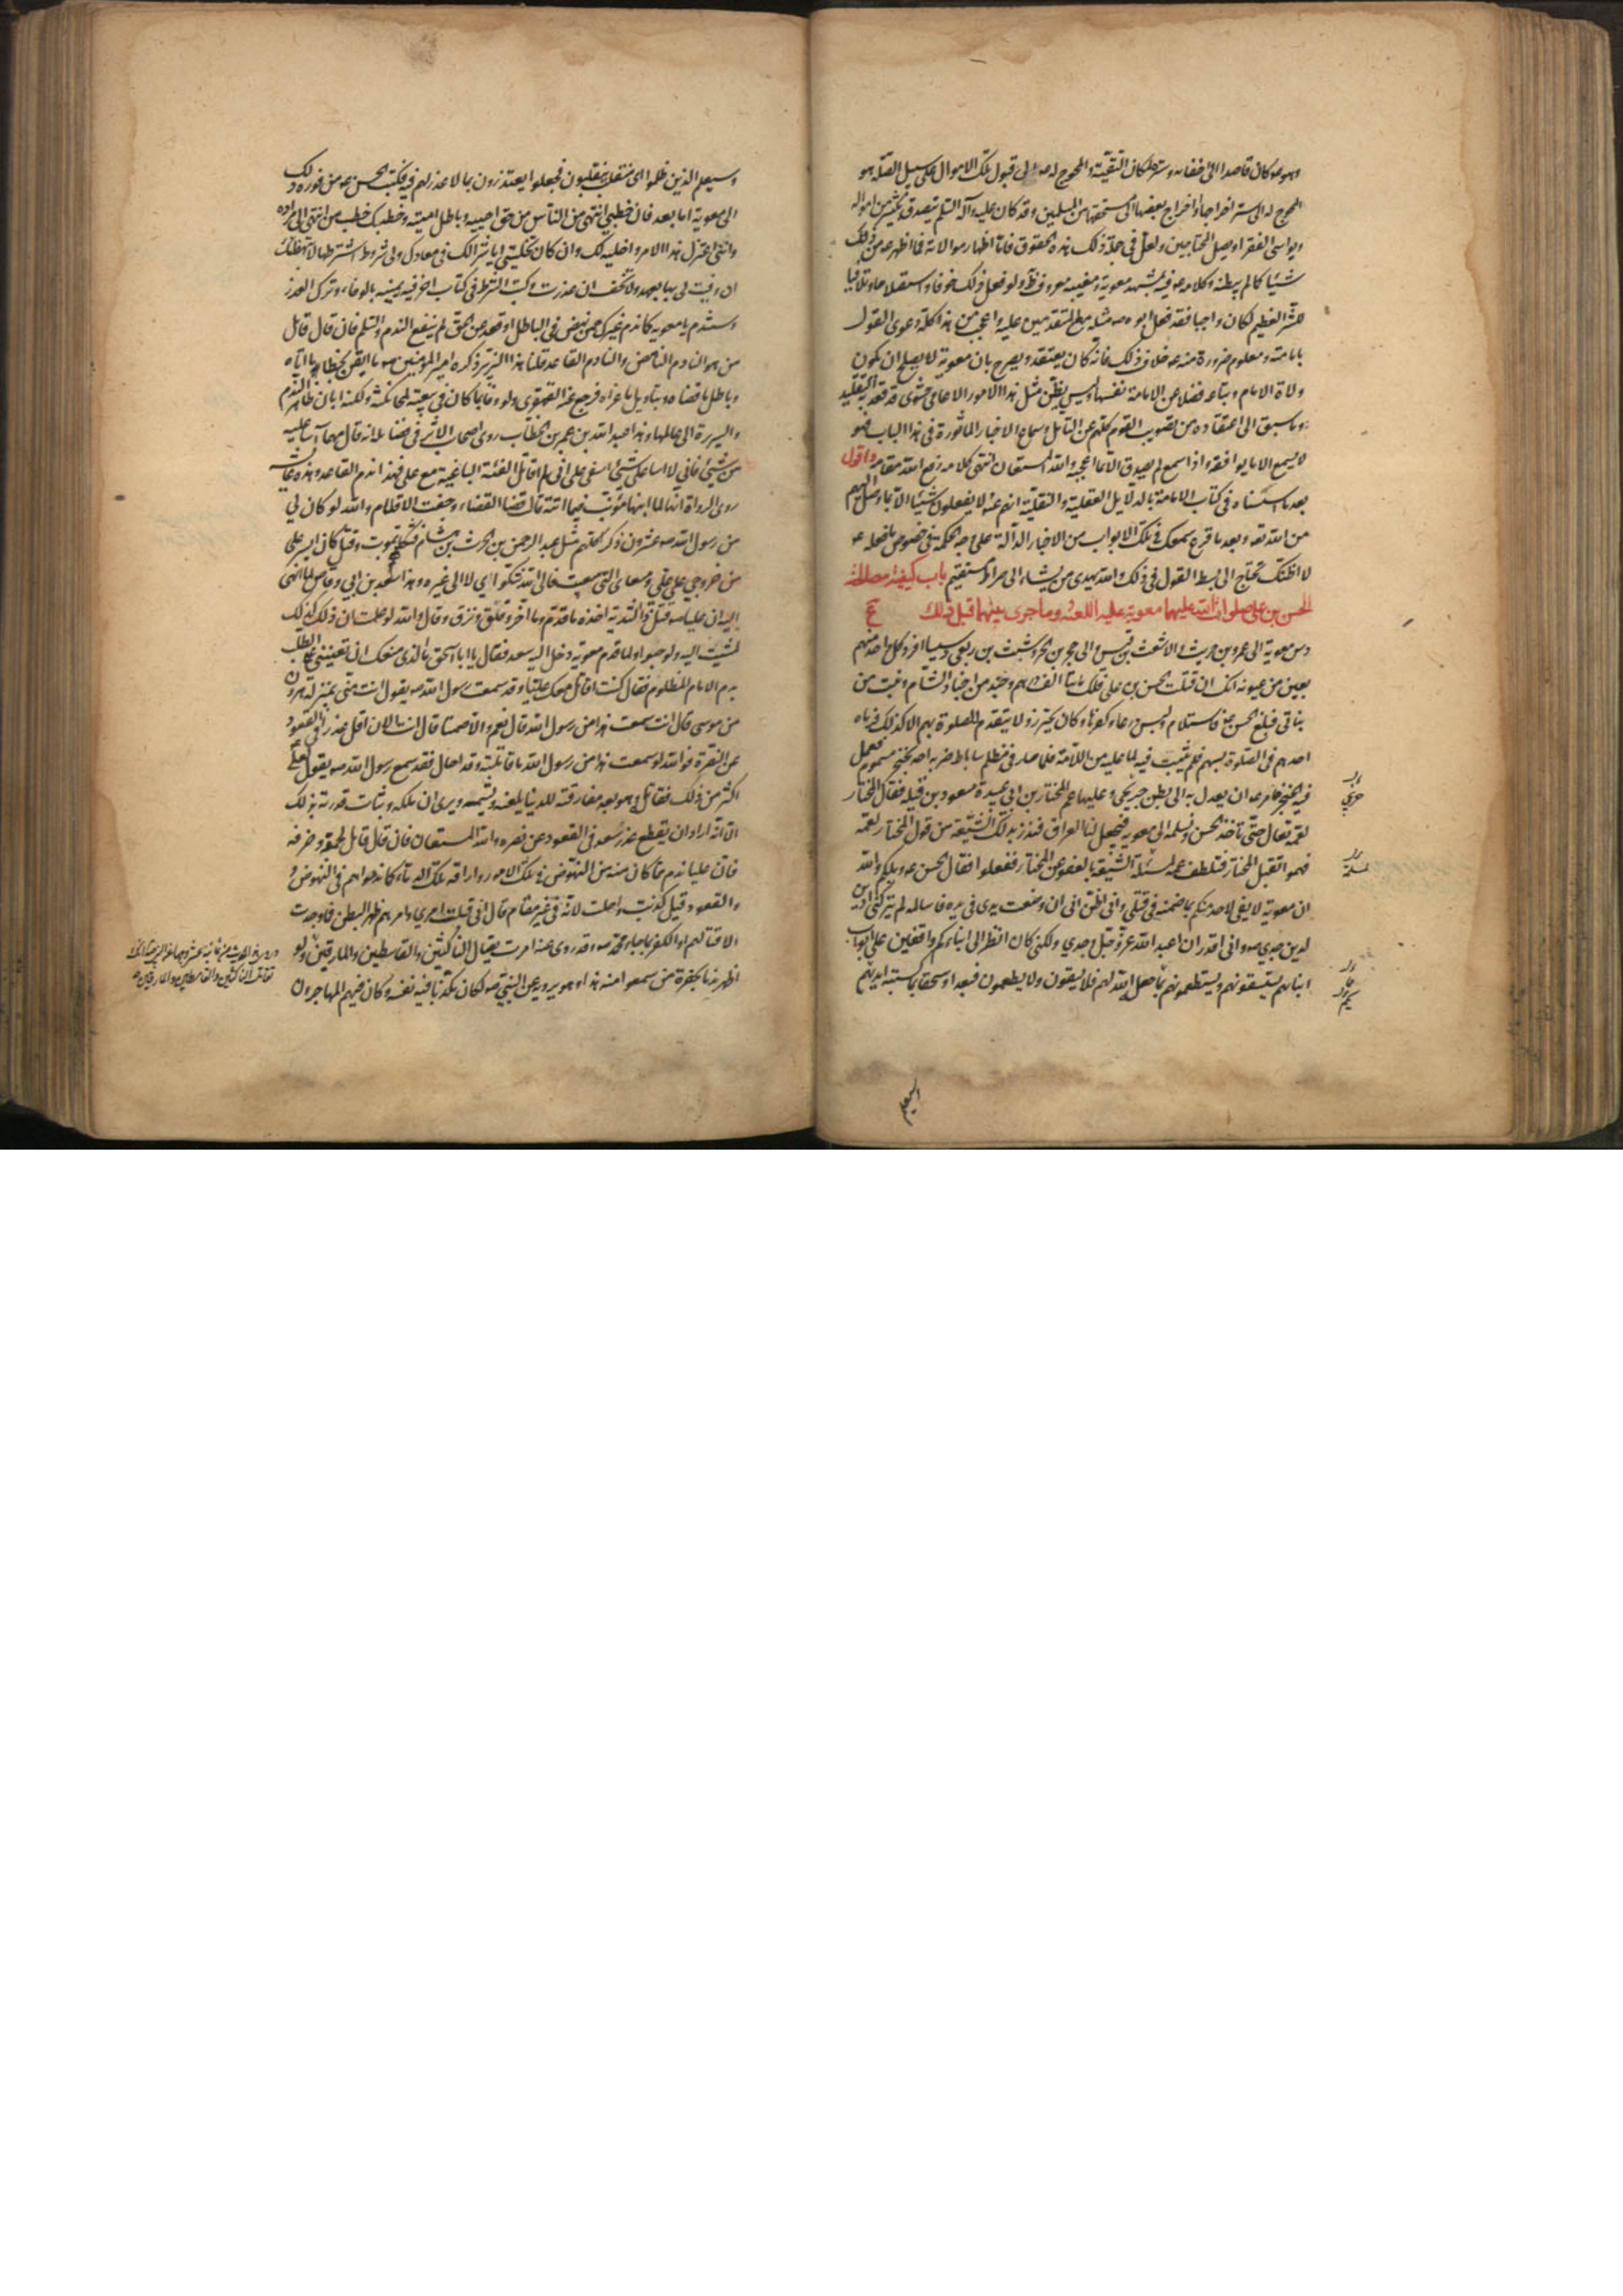 وهو عه كان قاصدا الى اخفائه وستره لمكان التقية والمحوج له عه الى قبول تلك الاموال على سبيل الصلة هو
المحوج له الى ستر اخراجها او اخراج بعضها الى مستحقها من المسلمين وقد كان عليه وآله السلم يتصدق بكثير من امواله
ويواسي الفقراء ويصل المحتاجين ولعل في جملة ذلك هذه الحقوق فاما اظهار موالاته فما اظهر عه من ذلك
شيئا كما لم يبطنه وكلامه عه فيه بمشهد معوية ومغيبه معروف ظ ولو فعل ذلك خوفا واستصلاحا وتلافيا
للشر العظيم لكان واجبا فقد فعل ابوه صه مثله مع المتقدمين عليه واعجب من هذا كله دعوى القول
بامامته ومعلوم ضرورة منه عه خلاف ذلك فانه كان يعتقد ويصرح بان معوية لا يصلح ان يكون
ولاة الامام وتباعه فضلا عن الامامة نفسها وليس يظن مثل هذا الامور الا عامي حشوي قد قعد به التقليد
وما سبق الى اعتقاده من تصويب القوم كلهم عن التامل وسماع الاخبار الماثورة في هذا الباب فهو
لا يسمع الا ما يوافقه واذا سمع لم يصدق الا بما اعجبه والله المستعان انتهى كلامه رفع الله مقامه واقول
بعد ما اسسناه في كتاب الامامة بالدلايل العقلية والنقلية انهم عه لا يفعلون شيئا الا بما وصل اليهم
من الله تعه وبعد ما قرع سمعك في تلك الابواب من الاخبار الدالة على وجه الحكمة في خصوص ما فعله عه
لا اظنك تحتاج الى بسط القول في ذلك والله يهدي من يشاء الى صراط مستقيم باب كيفية مصالحة
الحسن بن على صلوات الله عليهما معوية عليه اللعنة وما جرى بينهما قبل ذلك ع
دس معوية الى عمرو بن حريث والاشعث بن قيس والى حجر بن الحر وشبث بن ربعي دسيسا افرد كل احد منهم
بعين من عيونه انك ان قتلت الحسن بن على فلك مائتا الف درهم وجند من اجناد الشام وبنت من
بناتي فبلغ الحسن عه فاستلام ولبس درعا وكفرها وكان يحترز ولا يتقدم للصلوة بهم الا كذلك فرماه
احدهم في الصلوة بسهم فلم يثبت فيه لما عليه من اللامة فلما صار في مظلم ساباط ضربه احدهم بخنجر مسموم فعمل
فيه الخنجر فامر عه ان يعدل به الى بطن جريحى وعليها عم المختار بن ابي عبيدة مسعود بن قيلة فقال المختار
لعمه تعال حتى ناخذ الحسن ونسلمه الى معوية فيجعل لنا العراق فنذر بذلك الشيعة من قول المختار لعمه
فهموا بقتل المختار فتلطف عمه لمسئلة الشيعة بالعفو عن المختار ففعلوا فقال الحسن عه ويلكم والله
ان معوية لا يفي لاحد منكم بما ضمنه في قتلي واني اظن اني ان وضعت يدي في يده فاسالمه لم يتركني ادين
لدين جدي صه واني اقدر ان اعبد الله عز وجل وحدي ولكني كاني انظر الى ابنائكم واقفين على ابواب
ابنائهم يستسقونهم ويستطعمونهم بما جعل الله لهم فلا يسقون ولا يطعمون فبعدا وسحقا لما كسبته ايديهم
وسيعلم
وسيعلم الذين ظلموا اى منقلب ينقلبون فجعلوا يعتذرون بما لا عذر لهم فيه فكتب الحسن عه من فوره ذلك
الى معوية اما بعد فان خطبي انتهى من الناس من حق احييه وباطل اميته وخطبك خطب من انتهى الى مراده
وانني اعتزل هذا الامر واخليه لك وان كان تخليتي اياه شرا لك في معادك ولى شروط اشترطها لا تبهظنك
ان وفيت لى بها بعهد ولا تخف ان غدرت وكتب الشرط في كتاب اخر فيه يمنيه بالوفاء وترك الغدر
وستندم يا معوية كما ندم غيرك ممن نهض في الباطل او قعد عن الحق لم ينفع الندم والسلم فان قال قائل
من هو النادم الناهض والنادم القاعد قلنا هذا الزبير ذكره امير المؤمنين صه ما ايقن بخطائه ما اتاه
وباطل ما قضاه وبتاويل ما عزاه فرجع عنه القهقرى ولو وفا بما كان في بيعته لمحا نكثه ولكنه ابان ظاهرا الندم
والسريرة الى عالمها وهذا عبد الله بن عمر بن الخطاب روى اصحاب الاثر في فضائله انه قال مهما آسا عليه
من شئ فاني لا آسا على شئ اسفى على اني لم اقاتل الفئة الباغية مع على فهذا ندم القاعد وهذه عايشه
روى الرواة انها لما انبها مؤنب فيما اتته قالت قضا القضاء وجفت الاقلام والله لو كان لي
من رسول الله صه عشرون ذكرا كلهم مثل عبد الرحمن بن الحرث بن هشام فثكلتهم بموت وقتل كان ايسر على
من خروجي على على ومسعاى التي سعيت فالى الله شكواى لا الى غيره وهذا سعد بن ابي وقاص لما انهى
اليه ان عليا صه قتل ذا الثدية اخذه ما قدم وما اخر وقلق ونزق وقال والله لو علمت ان ذلك كذلك
لمشيت اليه ولو حبوا ولما قدم معوية دخل اليه سعد فقال يا ابا اسحق ما الذى منعك ان تعينني على الطلب
بدم الامام المظلوم فقال كنت اقاتل معك عليا وقد سمعت رسول الله صه يقول انت مني بمنزلة هرون
من موسى قال انت سمعت هذا من رسول الله قال نعم والا صمتا قال انت الان اقل عذرا في القعود
عن النصرة فوالله لو سمعت هذا من رسول الله ما قاتلته وقد احال فقد سمع رسول الله صه يقول لعلى
اكثر من ذلك فقاتله وهو بعد مفارقته للدنيا يلعنه ويشتمه ويرى ان ملكه وثبات قدرته بذلك
الا انه اراد ان يقطع عذر سعد في القعود عن نصره والله المستعان فان قال قائل لحمقه وخرفه
فان عليا ندم مما كان منه من النهوض في تلك الامور واراقة تلك الدماء كما ندموا هم في النهوض و
والقعود قيل كذبت واحلت لانه في غير مقام قال اني قبلت امري وامرهم ظهرا لبطن فما وجدت
الا قتالهم او الكفر بما جاء محمد صه وقد روى عنه امرت بقتال الناكثين والقاسطين والمارقين ولو
اظهر نداما بحضرة من سمعوا منه هذا وهو يرويه عن النبي صه لكان مكذبا فيه نفسه وكان فيهم المهاجرون